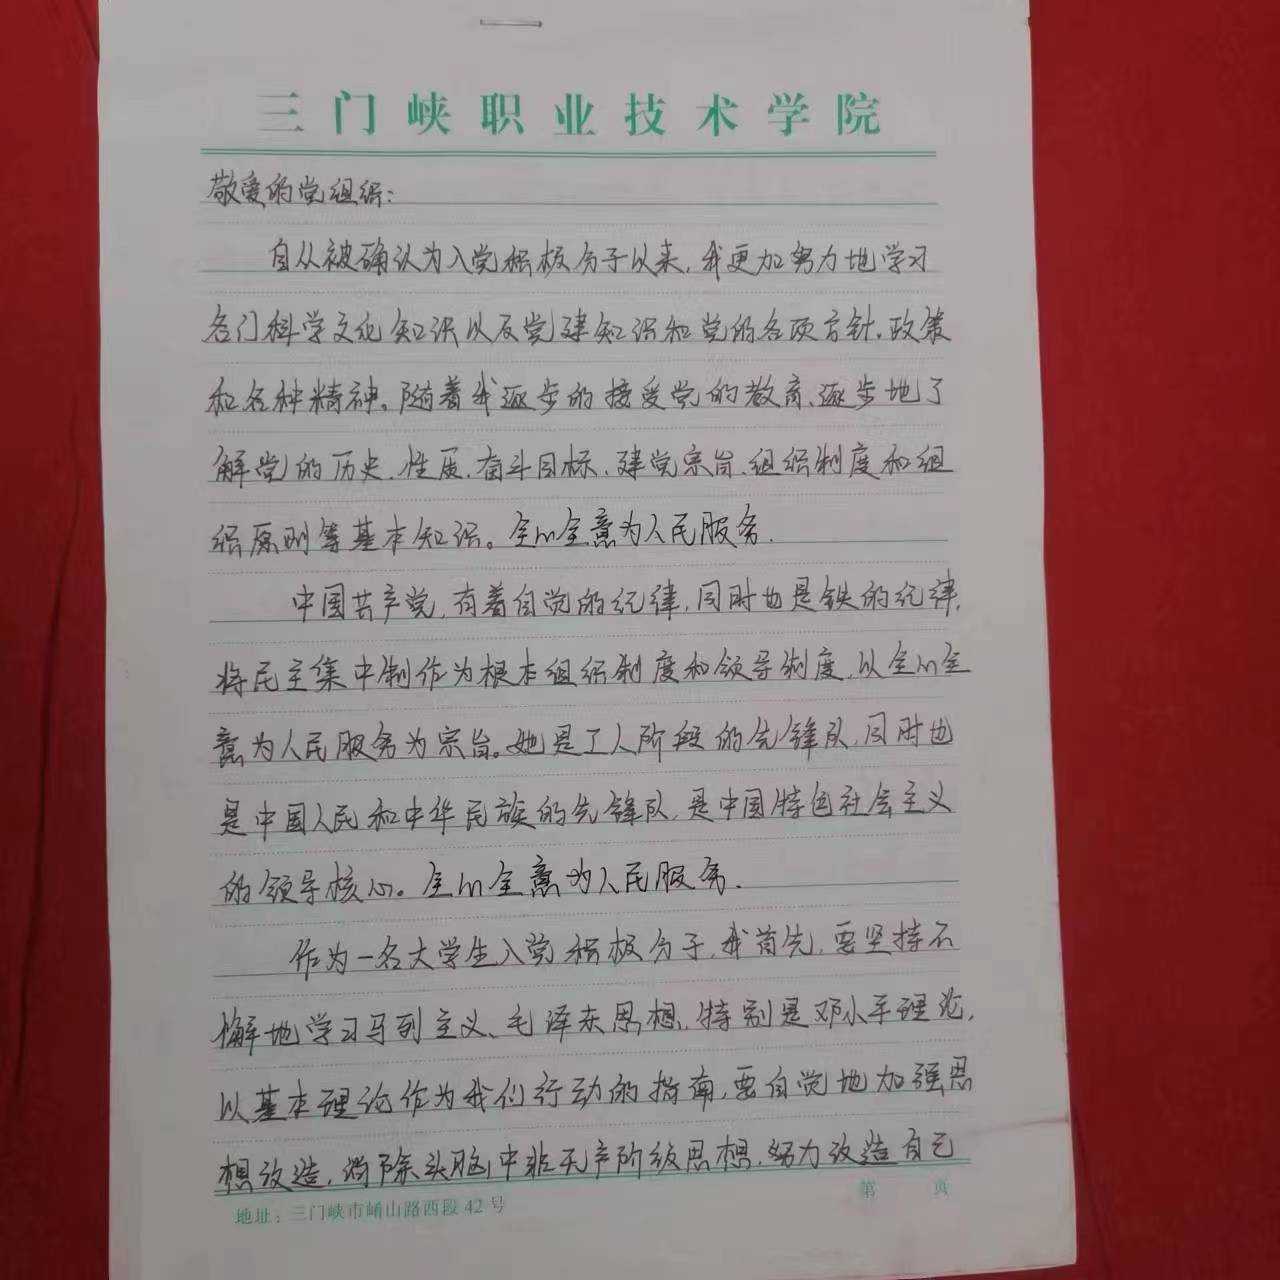 三门峡职业技术学院
敬爱的党组织：
自从被确认为入党积极分子以来，我更加努力地学习
各门科学文化知识以及党建知识和党的各项方针、政策
和各种精神。随着我逐步的接受党的教育、逐步地了
解党的历史、性质、奋斗目标、建党宗旨、组织制度和组
织原则等基本知识。全心全意为人民服务.
中国共产党，有着自觉的纪律，同时也是铁的纪律，
将民主集中制作为根本组织制度和领导制度，以全心全
意为人民服务为宗旨。她是工人阶段的先锋队，同时也
是中国人民和中华民族的先锋队，是中国特色社会主义
的领导核心。全心全意为人民服务.
作为一名大学生入党积极分子，我首先，要坚持不
懈地学习马列主义、毛泽东思想，特别是邓小平理论，
以基本理论作为我们行动的指南，要自觉地加强思
想改造，消除头脑中非无产阶级思想，努力改造自己
第 页
地址：三门峡市崤山路西段42号